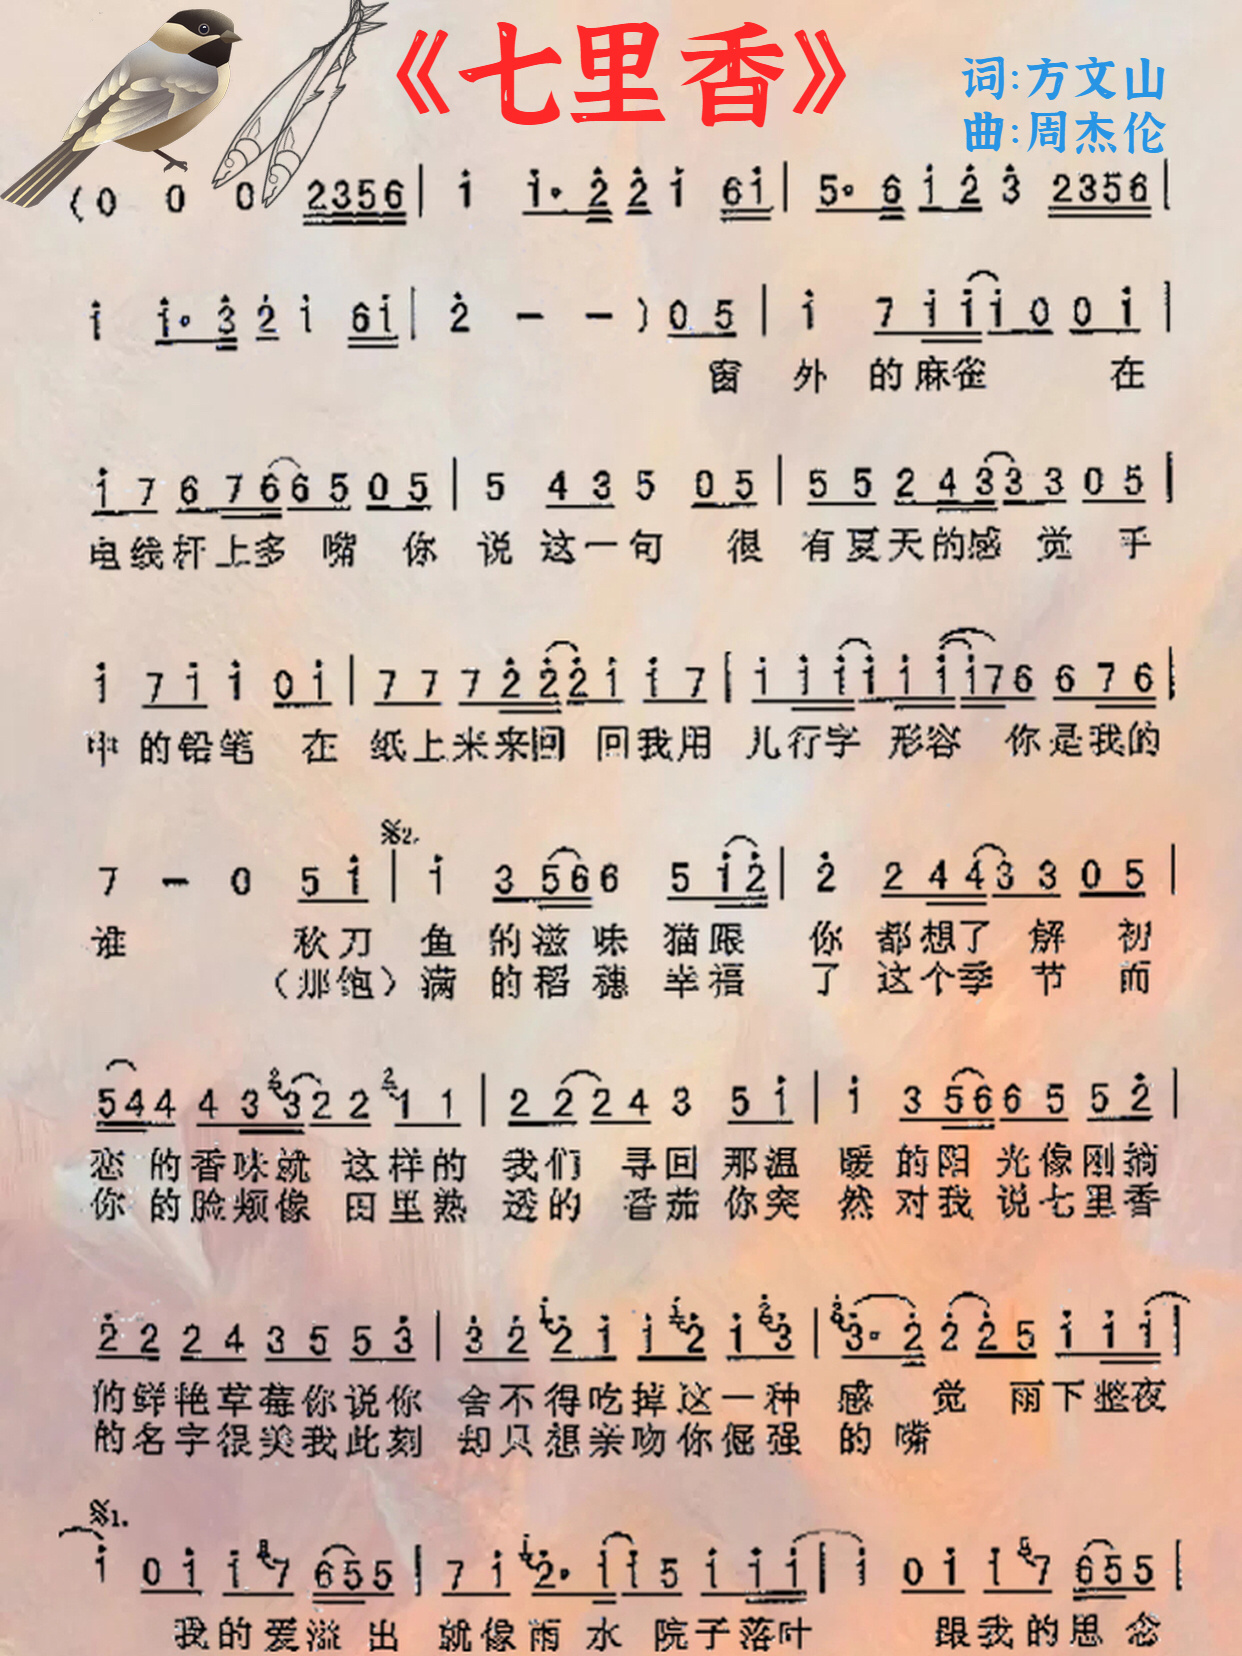 《七里香》
词:方文山
曲:周杰伦
(0 0 0 2356 | i i· 2 2 i 6i | 5· 6 i 2 3 2356 |
i i· 3 2 i 6i | 2 - - ) 0 5 | i 7 i i i 0 0 i |
窗 外 的麻雀 在
i 7 6 7 6 6 5 0 5 | 5 4 3 5 0 5 | 5 5 2 4 3 3 3 0 5 |
电线杆上多 嘴 你 说 这一句 很 有夏天的感 觉 手
i 7 i i 0 i | 7 7 7 2 2 2 i i 7 | i i i i i i i 7 6 6 7 6 |
中 的铅笔 在 纸上来来回 回我用 几行字 形容 你是我的
7 - 0 5 i | i 3 5 6 6 5 i 2 | 2 2 4 4 3 3 0 5 |
𝄋2.
谁 秋刀 鱼 的滋 味 猫跟 你 都想了 解 初
(那饱)满 的稻 穗 幸福 了 这个季 节 而
5 4 4 4 3 3 2 2 1 1 | 2 2 2 4 3 5 i | i 3 5 6 6 5 5 2 |
恋 的香味就 这样的 我们 寻回 那温 暖 的阳 光像刚摘
你 的脸颊像 田里熟 透的 番茄 你突 然 对我 说七里香
2 2 2 4 3 5 5 3 | 3 2 2 i i 2 i 3 | 3· 2 2 2 5 i i i |
的鲜艳草莓你说你 舍不得吃掉这一种 感 觉 雨下整夜
的名字很美我此刻 却只想亲吻你倔强 的 嘴
𝄋1.
i 0 i i 7 6 5 5 | 7 i 2· i i 5 i i i | i 0 i i 7 6 5 5 |
我的爱溢 出 就像雨 水 院子落叶 跟我的思 念